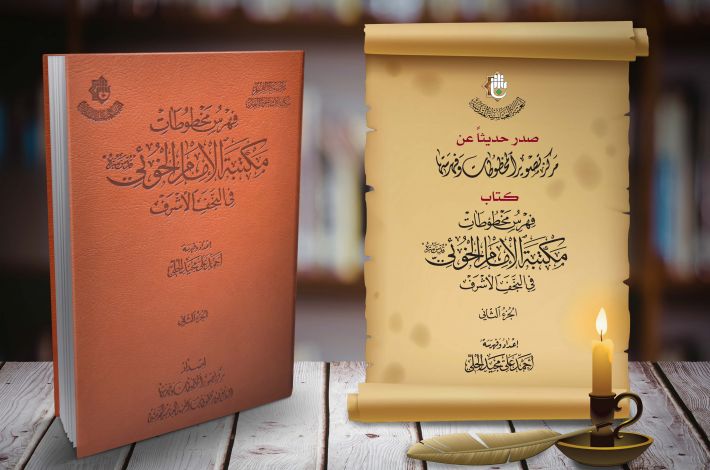 فهرس مخطوطات
مكتبة الإمام الخوئي
في النجف الأشرف
إعداد وفهرسة
أحمد علي مجيد الحلي
الجزء الثاني
إصدار
مركز تصوير المخطوطات وفهرستها
صدر حديثاً عن
مركز تصوير المخطوطات وفهرستها
كتاب
فهرس مخطوطات
مكتبة الإمام الخوئي
في النجف الأشرف
الجزء الثاني
إعداد وفهرسة
أحمد علي مجيد الحلي